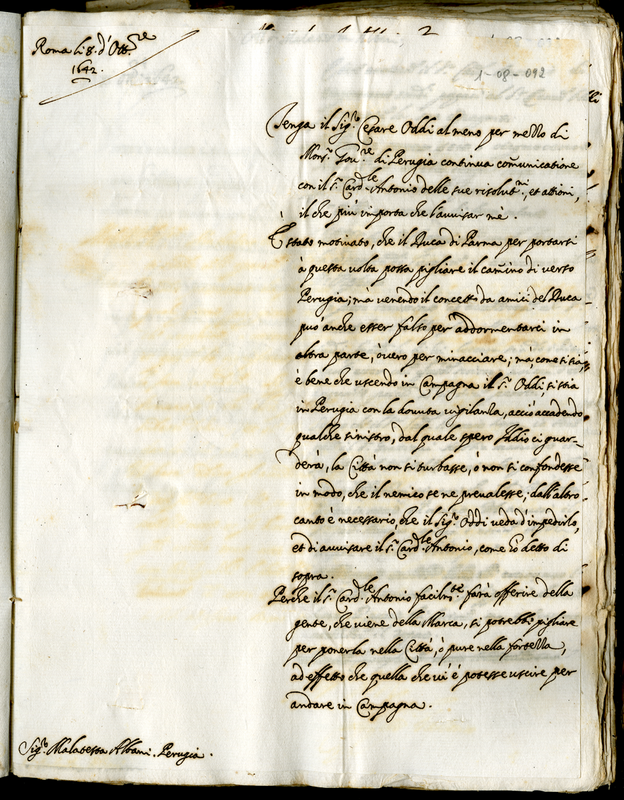 Roma li 8. d'Ott.re
1642.
1-08-092
Tenga il Sig.re Cesare Oddi almeno per mezzo di
Mons.r Gou.re di Perugia continua com̃unicatione
con il S.r Card.le Antonio delle sue risolut.ni, et attioni,
il che più importa che l'auuisar mè.
È stato motiuato, che il Duca di Parma per portarsi
à questa volta possa pigliare il cam̃ino di verso
Perugia; ma venendo il concetto da amici del Duca
può anche esser falso per addormentarci in
altra parte, ò uero per minacciare; mà, come si sia,
è bene che uscendo in Campagna il S.r Oddi, si stia
in Perugia con la douuta vigilanza, acciò accadendo
qualche sinistro, dal quale spero Iddio ci guar-
derà, la Città non si turbasse, ò non si confondesse
in modo, che il nemico se ne preualesse; dall'altro
canto è necessario, che il Sig.re Oddi veda d'impedirlo,
et di auuisare il S.r Card.le Antonio, come hò detto di
sopra.
Perche il S.r Card.le Antonio facilm.te farà offerire della
gente, che viene della Marca, si potrebbe pigliare
per ponerla nella Città, ò pure nella fortezza,
ad effetto che quella che iui è potesse uscire per
andare in Campagna.
Sig.re Malatesta Albani. Perugia.